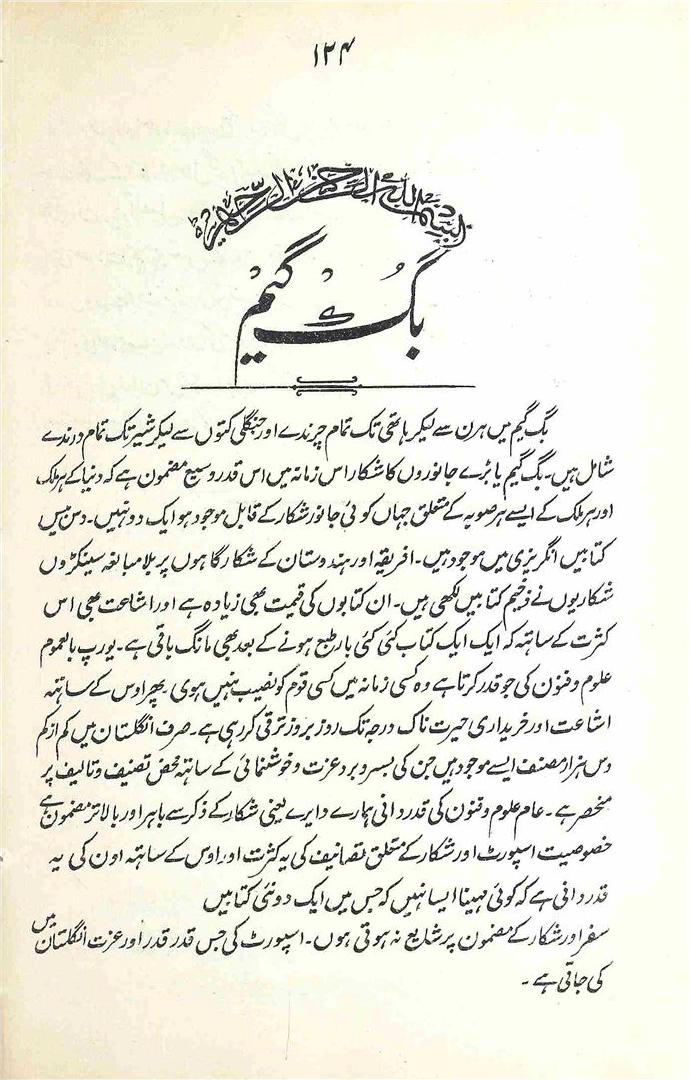 ۱۲۴
بسم اللہ الرحمن الرحیم
بگ گیم
بگ گیم میں ہرن سے لیکر ہاتھی تک تمام چرندے اور جنگلی کتوں سے لیکر شیر تک تمام درندے
شامل ہیں۔ بگ گیم یا بڑے جانوروں کا شکار اس زمانہ میں اس قدر وسیع مضمون ہے کہ دنیا کے ہر ملک
اور ہر ملک کے ایسے ہر صوبہ کے متعلق جہاں کوئی جانور شکار کے قابل موجود ہو ایک دو نہیں۔ دس بیس
کتابیں انگریزی میں موجود ہیں۔ افریقہ اور ہندوستان کے شکار گاہوں پر بلا مبالغہ سینکڑوں
شکاریوں نے ضخیم کتابیں لکھی ہیں۔ ان کتابوں کی قیمت بھی زیادہ ہے اور اشاعت بھی اس
کثرت کے ساتہ کہ ایک ایک کتاب کئی کئی بار طبع ہونے کے بعد بھی مانگ باقی ہے۔ یورپ بالعموم
علوم و فنون کی جو قدر کرتا ہے وہ کسی زمانہ میں کسی قوم کو نصیب نہیں ہوی۔ پھر اوس کے ساتہہ
اشاعت اور خریداری حیرت ناک درجہ تک روز بروز ترقی کر رہی ہے۔ صرف انگلستان میں کم از کم
دس ہزار مصنف ایسے موجود ہیں جن کی بسر و برد عزت و خوشنمائی کے ساتہہ محض تصنیف و تالیف پر
منحصر ہے۔ عام علوم و فنون کی قدردانی ہمارے دایرے یعنی شکار کے ذکر سے باہر اور بالاتر مضمون ہے
خصوصیت اسپورٹ اور شکار کے متعلق تصانیف کی یہ کثرت اور اوس کے ساتہہ اون کی یہ
قدردانی ہے کہ کوئی مہینا ایسا نہیں کہ جس میں ایک دو نئی کتابیں
سفر اور شکار کے مضمون پر شایع نہ ہوتی ہوں۔ اسپورٹ کی جس قدر قدر اور عزت انگلستان میں
کی جاتی ہے۔